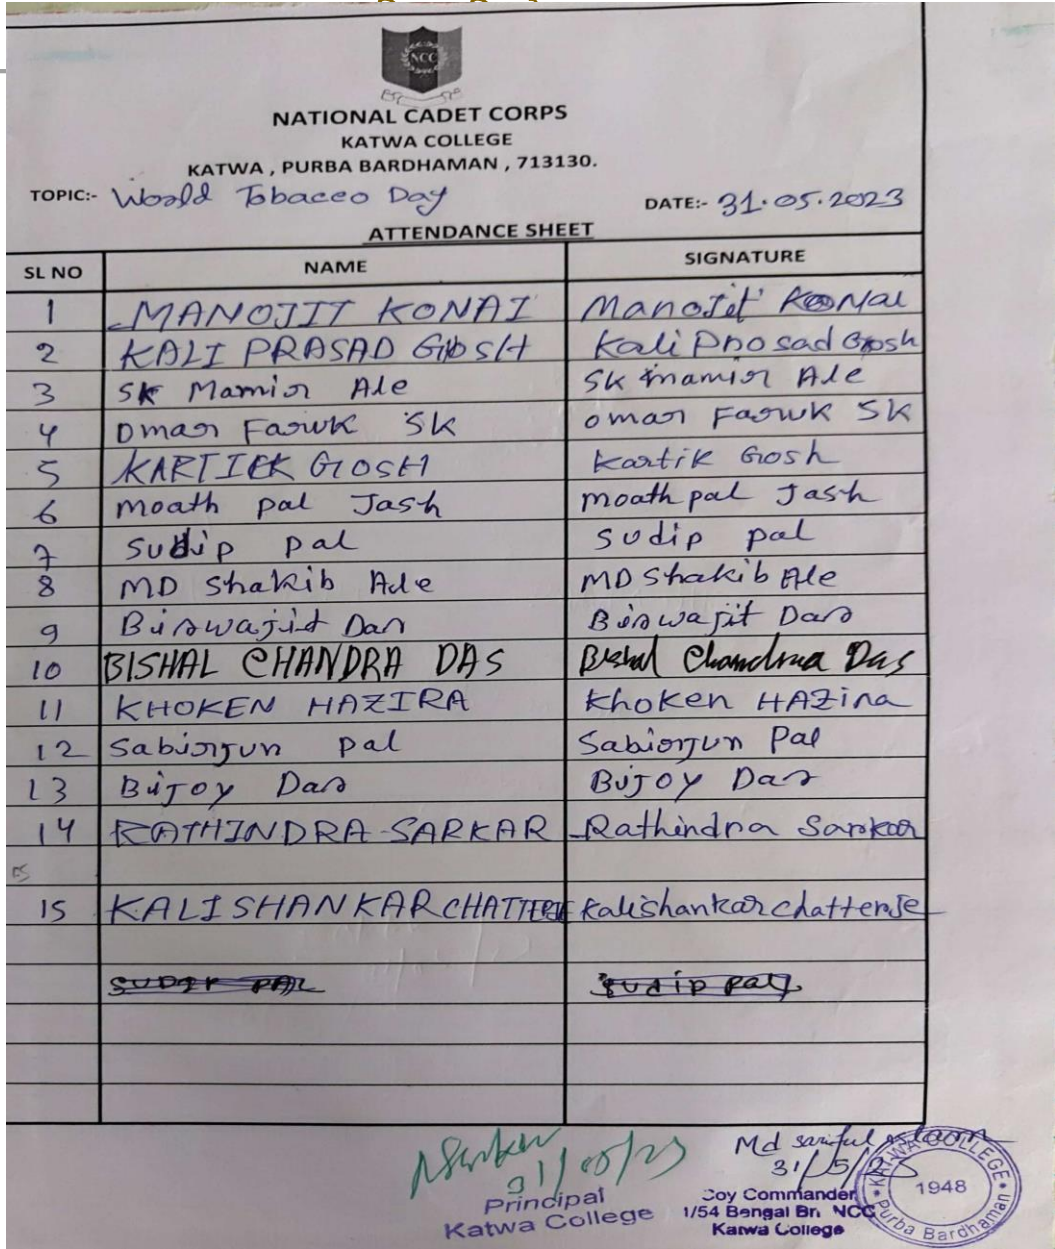 NCC
NATIONAL CADET CORPS
KATWA COLLEGE
KATWA , PURBA BARDHAMAN , 713130.
TOPIC:- World Tobacco Day DATE:- 31.05.2023
ATTENDANCE SHEET
SL NO NAME SIGNATURE
1 MANOJIT KONAI Manojit Konai
2 KALI PRASAD GHOSH Kali Prosad Gosh
3 SK Mamir Ale SK Mamir Ale
4 Omar Faruk SK Omar Faruk SK
5 KARTICK GOSH Kartik Gosh
6 moath pal Jash moath pal Jash
7 Sudip pal Sudip pal
8 MD Shakib Ale MD Shakib Ale
9 Biswajit Das Biswajit Das
10 BISHAL CHANDRA DAS Bishal Chandra Das
11 KHOKEN HAZIRA Khoken HAZira
12 Sabirjun pal Sabirjun Pal
13 Bijoy Das Bijoy Das
14 RATHINDRA SARKAR Rathindra Sarkar
15
15 KALISHANKAR CHATTERJE Kalishankar chatterje
SUDIP PAL Sudip pal
NSarkar Md sariful islam
31/05/23 31/5/23
Principal Coy Commander
Katwa College 1/54 Bengal Bn NCC
Katwa College
KATWA COLLEGE
1948
Purba Bardhaman